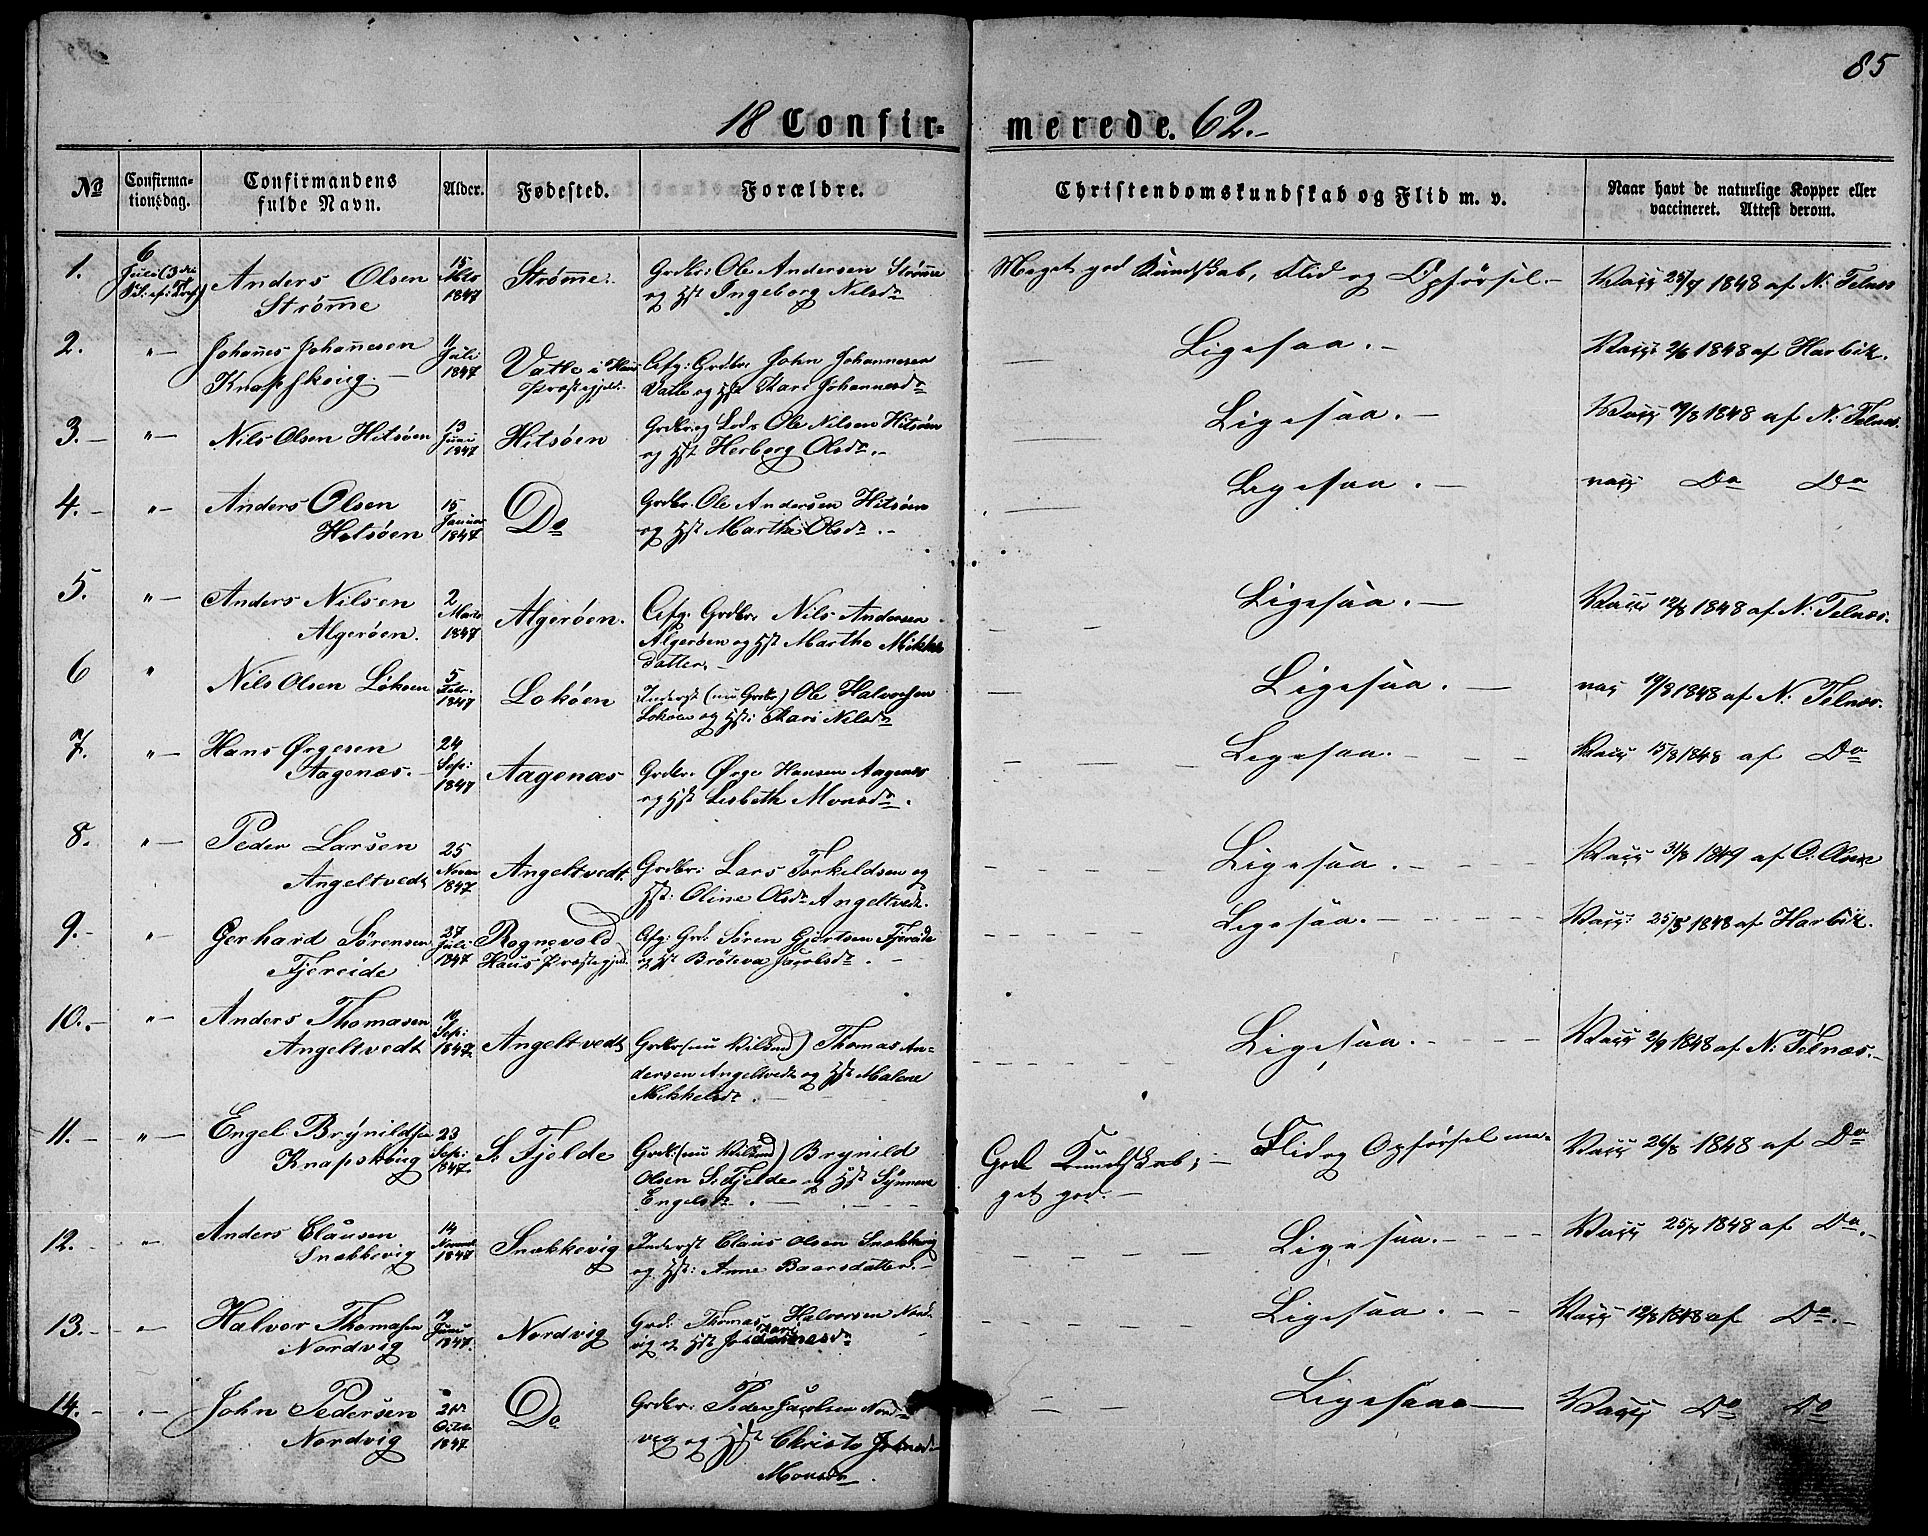 85
18 Confir-merede. 62.-
No
Confirma-
tionsdag.
Confirmandens
fulde Navn.
Alder.
Fødested.
Forældre.
Christendomskundskab og Flid m. v.
Naar havt de naturlige Kopper eller
vaccineret. Attest derom.
1.
6
Juli (3 die
Anders Olsen
Strøm̅e
15
1847
Strøm̅e.
Grdbr: Ole Andersen Strøm̅e
og Hst Ingeborg Nilsdr
Meget god Kundskab, Flid og Opførsel.-
Vacc 25/7 1848 af N: Telnæs
2.
"-
Johan̅es Johan̅esen
Knapskoug.
11
Juli
1847
Vatle i Haus
Præstegjeld.
Afg: Grdbr. John Johannesen
Vatle og Hst Kari Johannesdr
Ligesaa.-
Vacc 2/6 1848 af Harbitz.
3.-
"-
Nils Olsen Hitsøen
13
Juni
1847
Hitsøen
Grdbr. og Lods Ole Nilsen Hitsøen
og Hst Herborg Olsdr.-
Ligesaa.-
Vacc 19/8 1848 af N: Telnæs.
4.-
"-
Anders Olsen
Hitsøen
15
Januar
1847
Do
Grdbr. Ole Andersen Hitsøen
og Hst Martha Olsdr.-
Ligesaa.-
vacc Do Do
5.
"-
Anders Nilsen
Algerøen.
2
Marts
1847
Algerøen.
Afg. Grdbr. Nils Andersen
Algerøen og Hst Marthe Mikkels
datter.-
Ligesaa.-
Vacc 12/8 1848 af N: Telnæs.
6
"
Nils Olsen Lokøen
5
Febr.
1847
Lokøen
Inderst (nu Grdbr.) Ole Halvorsen
Lokøen og Hst: Kari Nilsdr
Ligesaa.-
vac 19/8 1848 af N: Telnæs.
7.
"-
Hans Ørgesen
Aagenæs.-
24
Sep:
1847
Aagenæs
Grdbr. Ørge Hansen Aagenæs
og Hst Lisbeth Monsdr.
Ligesaa.
Vacc 15/8 1848 af Do
8.
"-
Peder Larsen
Angeltvedt
25
Novem
1847
Angeltvedt
Grdbr: Lars Torkildsen og
Hst: Oline Olsdr Angeltvedt.
Ligesaa.
Vacc 31/8 1849 af O. Olsen
9.-
"
Gerhard Sørensen
Fjereide
27
Juli
1847
Rognevold
Haus Præstegjeld.
Afg: Grd: Søren Gjertsen Fjereide
og Hst Brøteva Jacobsdr.-
Ligesaa.
Vacc 25/5 1848 af Harbitz.
10.-
"-
Anders Thomasen
Angeltvedt
10
Sep:
1847.
Angeltvedt
Grdbr (nu Vilkmd) Thomas An-
dersen Angeltvedt og Hst Malene
Mikkelsdr.
Ligesaa.
Vacc 2/9 1848 af N: Telnæs.-
11.-
"-
Engel Brynildsen
Knapskoug
23
Sep:
1847.
S. Fjelde
Grdbr (nu Vilkmd) Brynild
Olsen S. Fjelde og Hst Synneve
Engelsdr.-
God Kundskab; - Flid og Opførsel me-
get god.-
Vacc 26/8 1848 af Do
12.-
"-
Anders Clausen
Snekkevig
14
Novemb
1847
Snekkevig
Inderst Claus Olsen Snekkevig
og Hst: Anne Baarsdatter.-
Ligesaa.
Vacc 25/7 1848 af Do.-
13.-
"-
Halvor Thomasen
Nordvig
Juni
1847.
Nordvig
Grd. Thomas Halvorsen Nord-
vig og Hst Kari Johannesdr
Ligesaa.
Vacc 12/8 1848 af Do.-
14.-
"-
John Pedersen
Nordvig
21
Octbr
1847
Do
Grdbr: Peder Jacobsen Nord-
vig og Hst Christo
Monsdr.
Ligesaa
Vacc Do Do